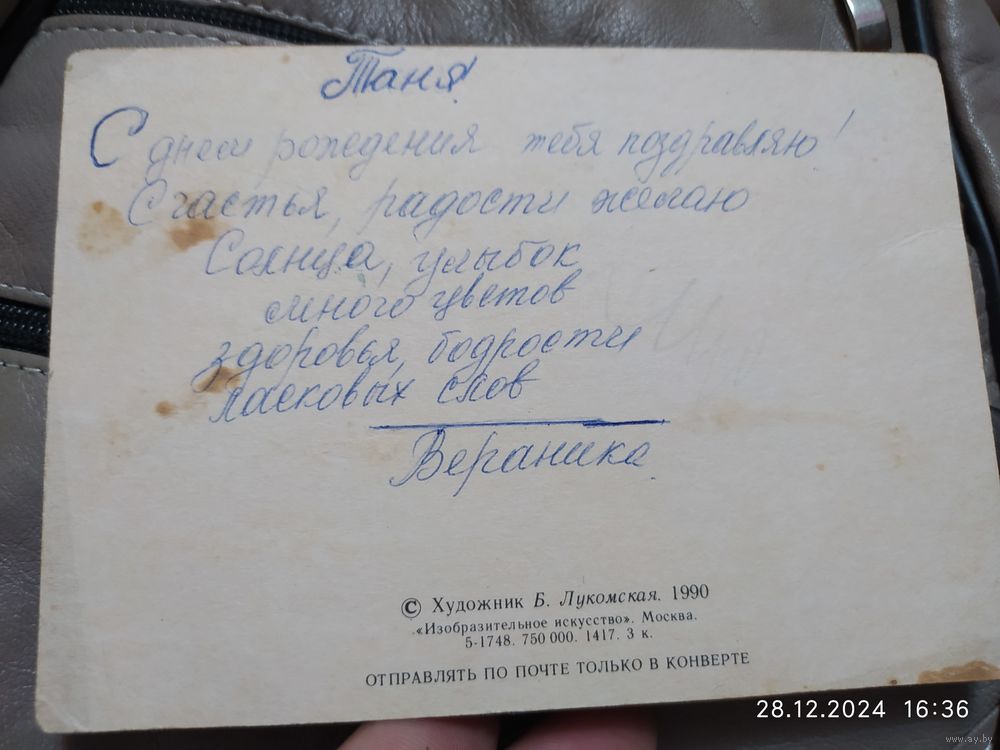 Таня!
С днем рождения тебя поздравляю!
Счастья, радости желаю
Солнца, улыбок
много цветов
здоровья, бодрости
ласковых слов
Вераника.
© Художник Б. Лукомская. 1990
«Изобразительное искусство». Москва.
5-1748. 750 000. 1417. 3 к.
ОТПРАВЛЯТЬ ПО ПОЧТЕ ТОЛЬКО В КОНВЕРТЕ
28.12.2024 16:36
www.ay.by